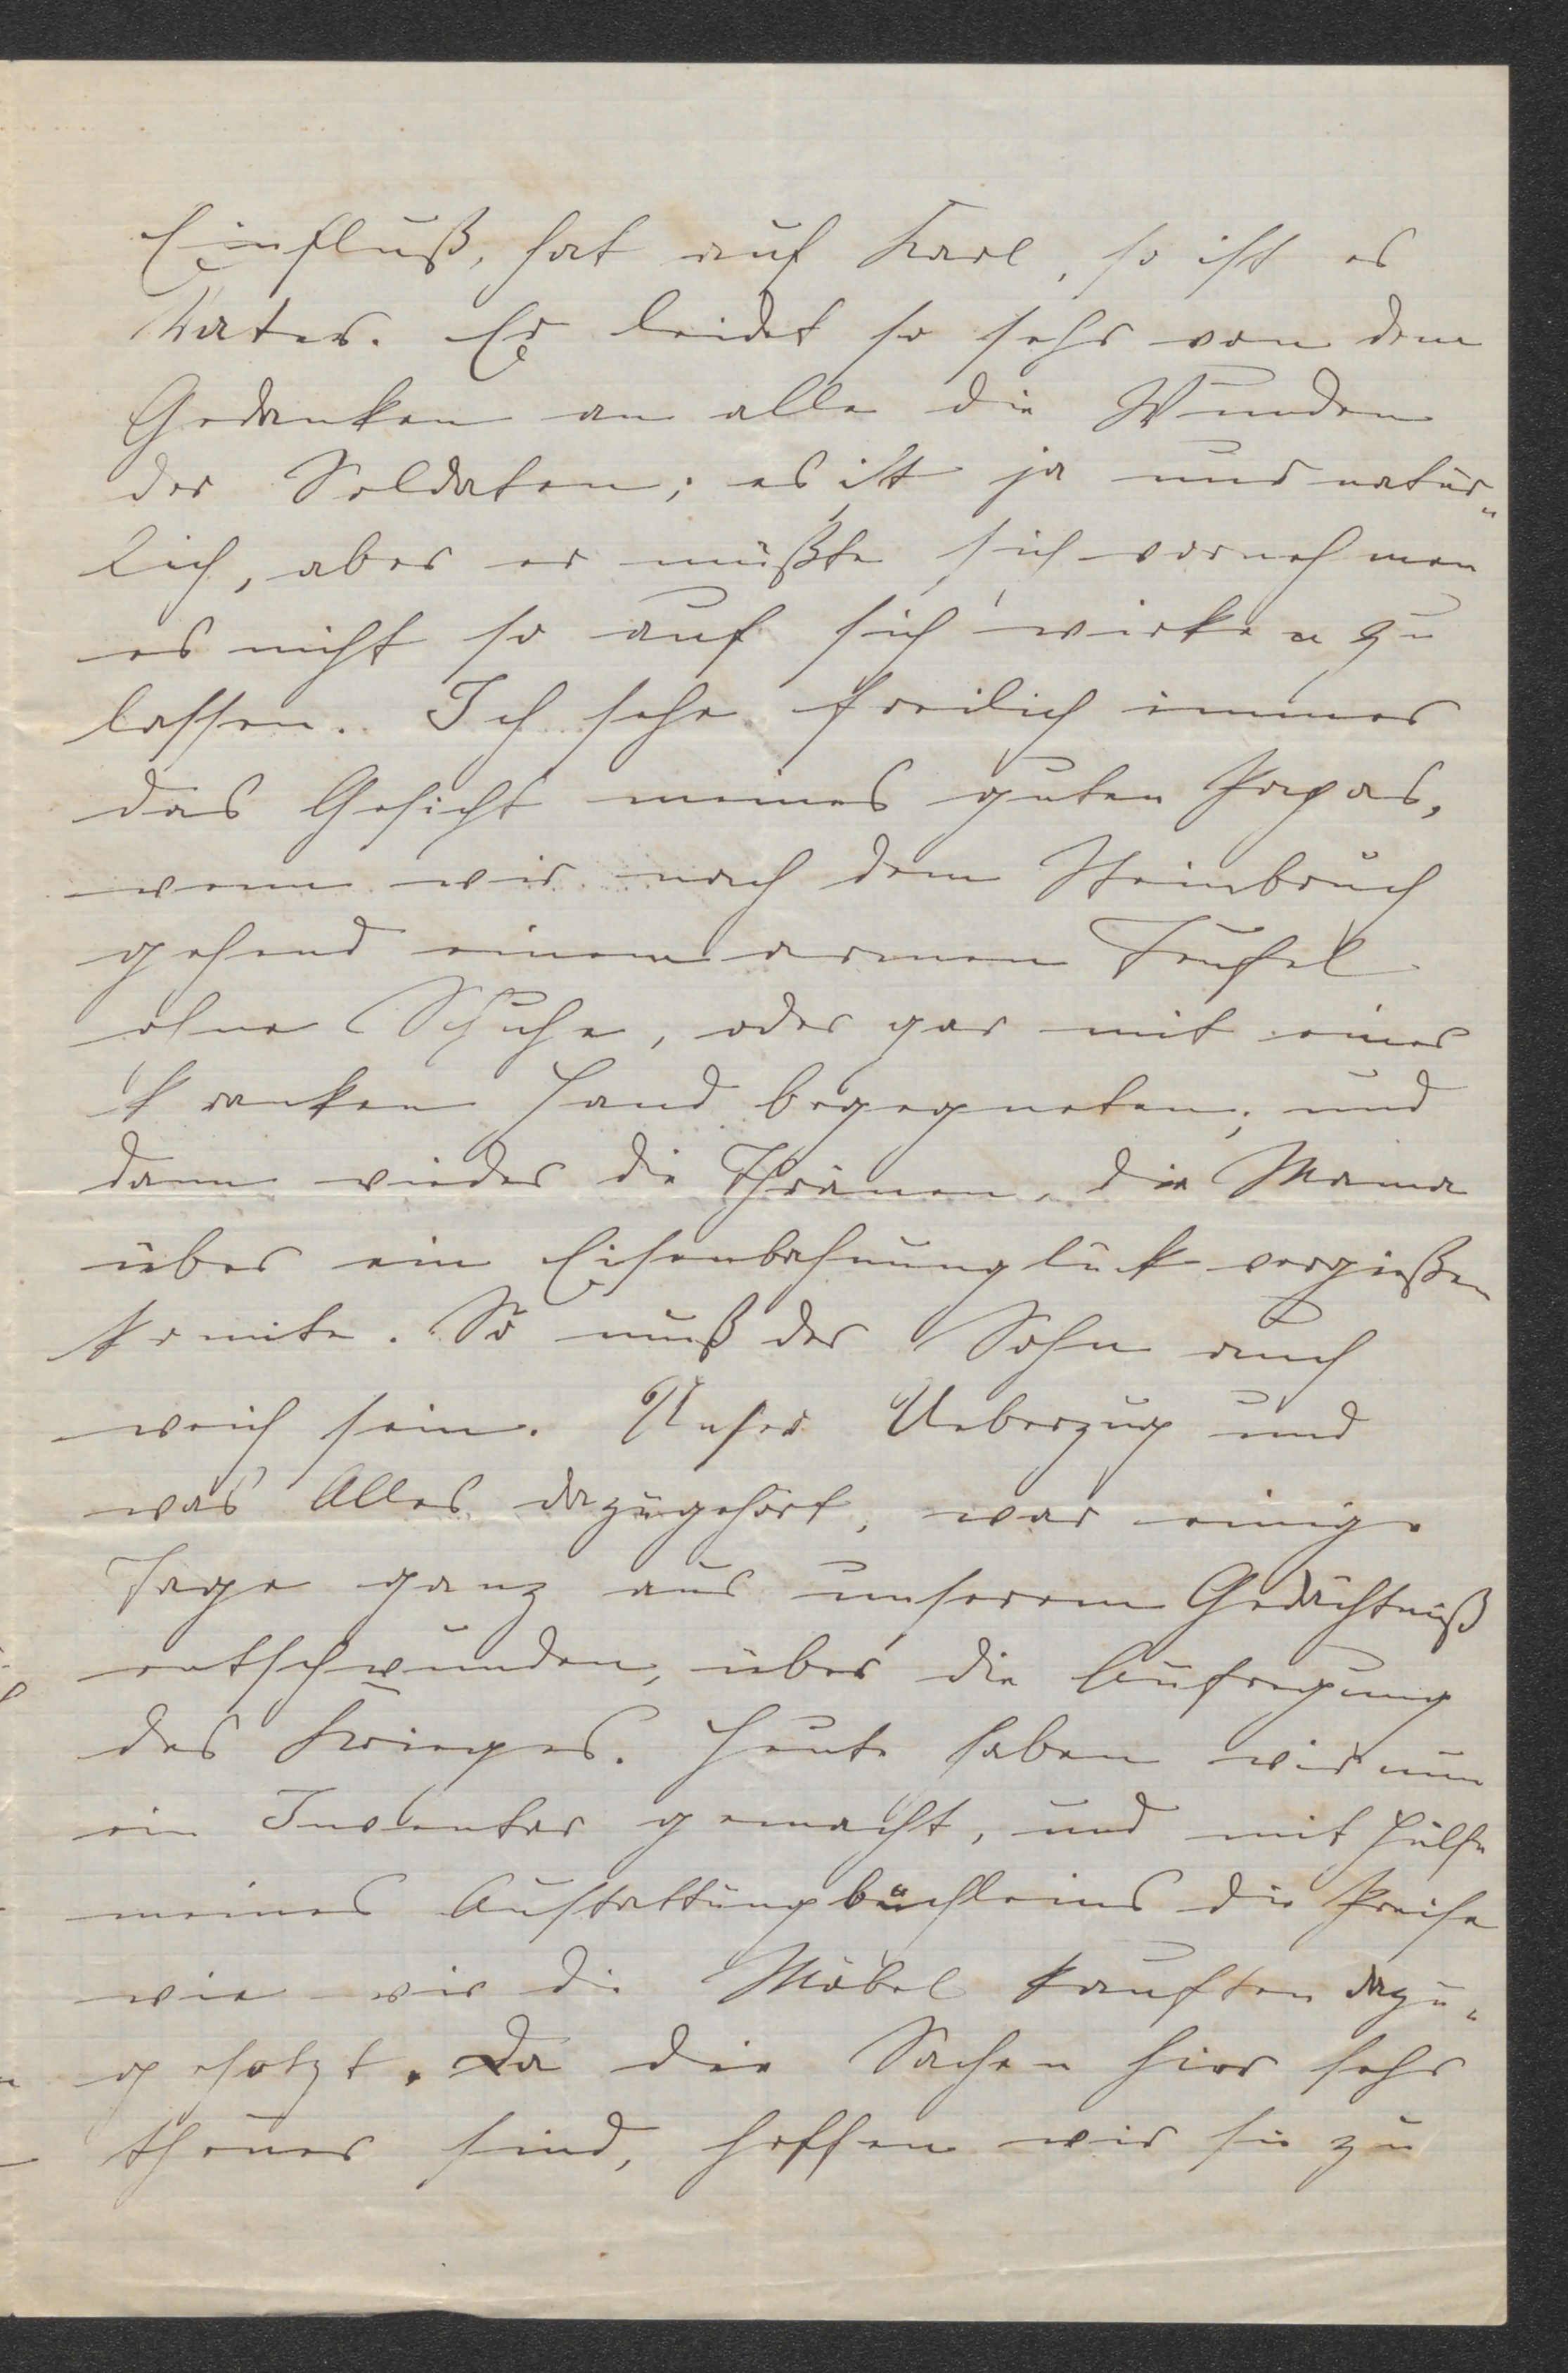 Einfluß, hat auf Karl, so ist es
Vater. Er leidet so sehr von dem
Gedanken an alle die Wunden
der Soldaten; es ist ja nur natür-
lich, aber er müßte sich vornehmen
es nicht so auf sich wirken zu
lassen. Ich sehe freilich immer
das Gesicht meines guten Papas,
wenn wir nach dem Steinbruch
gehend einem armen Teufel
ohne Schuhe, oder gar mit einer
kranken Hand begegneten; und
dann wieder die Thränen, die Mama
über ein Eisenbahnunglück vergießen
konnte. So muß der Sohn auch
weich sein. Unser Ueberzug und
was Alles dazugehört, war einige
Tage ganz aus unserem Gedächtniß
entschwunden, über die Aufregung
des Krieges. Heute haben wir nun
ein Inventar gemacht, und mit Hülfe
meines Austattungbüchleins die Preise
wie wir die Möbel kauften dazu-
gesetzt. Da die Sachen hier sehr
theuer sind, hoffen wir sie zu